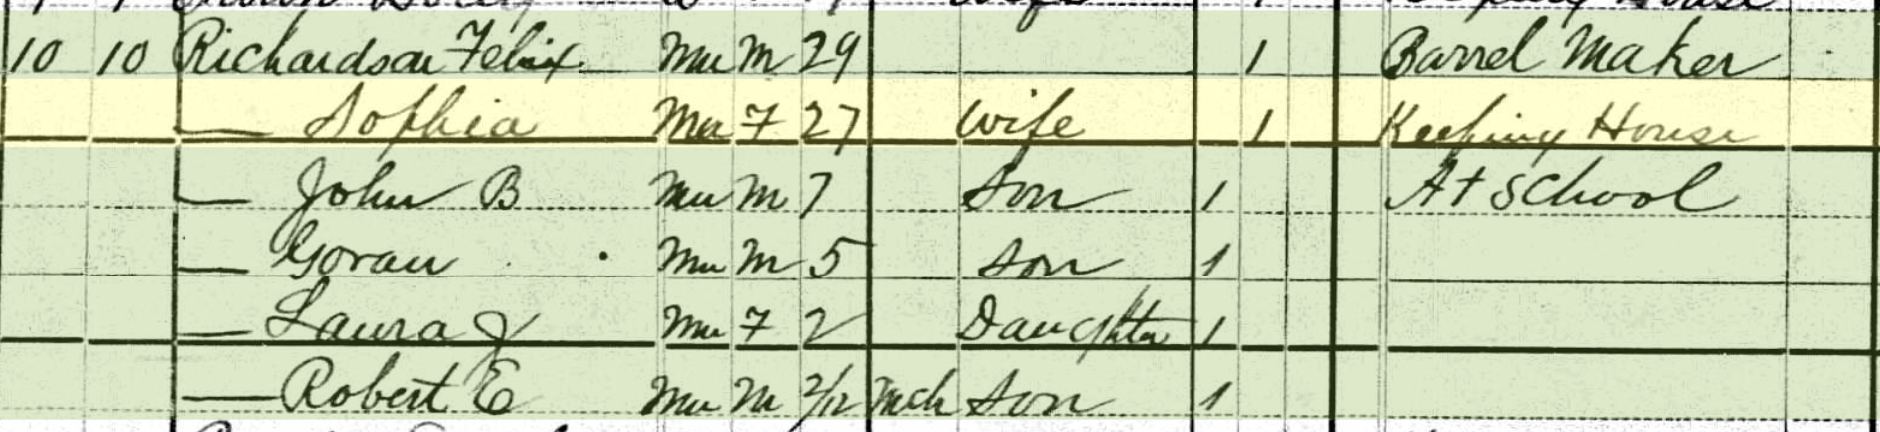 wife
10 10 Richardson Felix Mu M 29 1 Barrel Maker
— Sophia Mu F 27 wife 1 Keeping House
— John B Mu M 7 Son 1 At School
— Goran Mu M 5 Son 1
— Laura J Mu F 2 Daughter 1
— Robert E Mu M 2/12 Mch Son 1